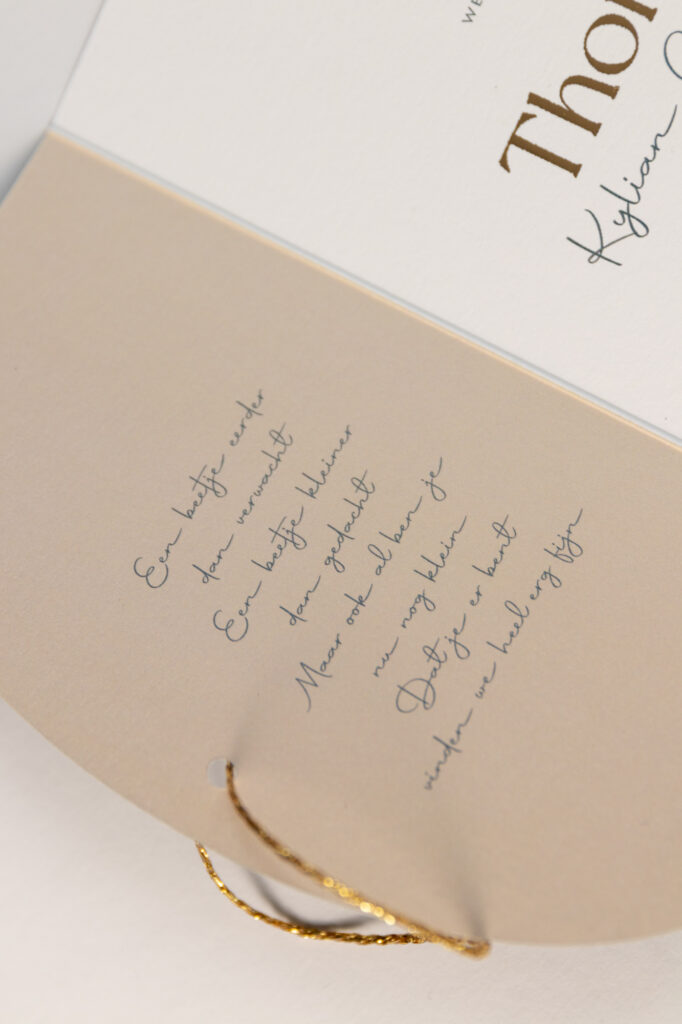 WE
Tho
Kylian
Een beetje eerder
dan verwacht
Een beetje kleiner
dan gedacht
Maar ook al ben je
nu nog klein
Dat je er bent
vinden we heel erg fijn